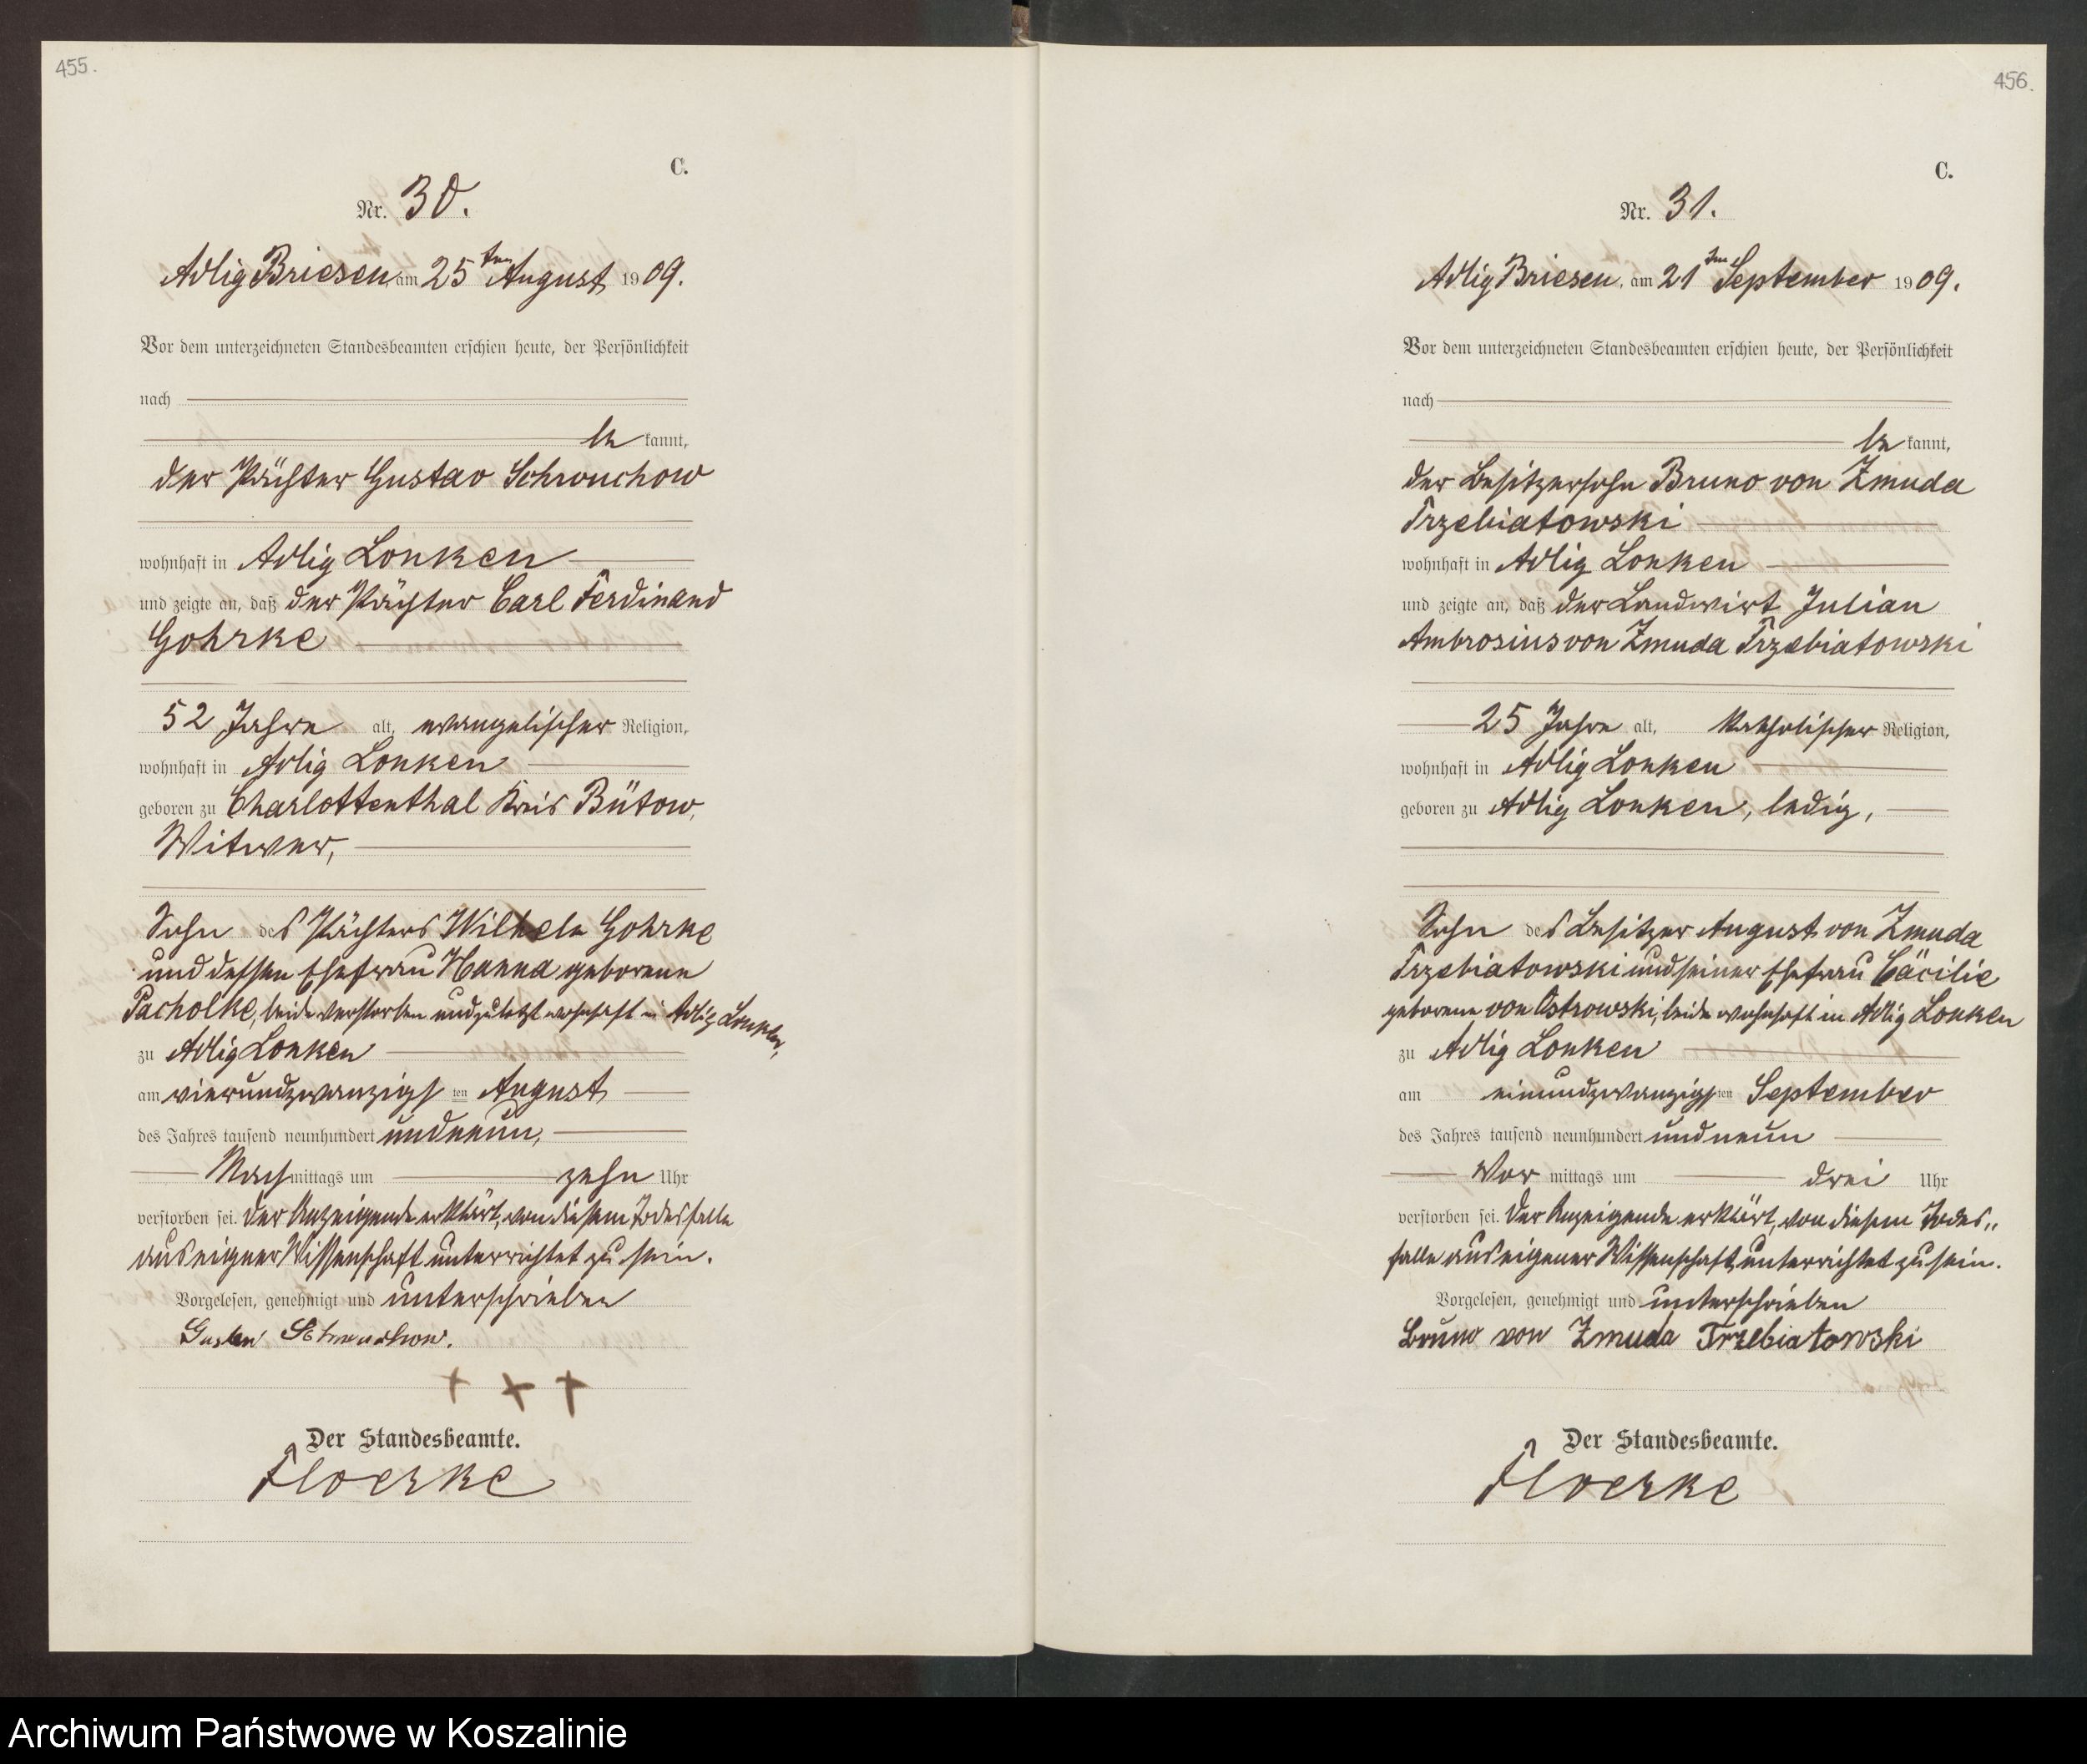 455.
C.
Nr. 30.
Adlig Briesen am 25ten August 1909.
Vor dem unterzeichneten Standesbeamten erschien heute, der Persönlichkeit
nach
be kannt,
der Pächter Gustav Schrouchow
wohnhaft in Adlig Lonken
und zeigte an, daß der Pächter Carl Ferdinand
Gohrke
52 Jahre alt, evangelischer Religion,
wohnhaft in Adlig Lonken
geboren zu Charlottenthal Kreis Bütow,
Witwer,
Sohn des Pächters Wilhelm Gohrke
und dessen Ehefrau Hanna geborene
Pacholke, beide verstorben und zuletzt wohnhaft in Adlig Lonken,
zu Adlig Lonken
am vierundzwanzigsten August
des Jahres tausend neunhundert undneun,
Nachmittags um zehn Uhr
verstorben sei. Der Anzeigende erklärt, von diesem Todesfalle
aus eigner Wissenschaft unterrichtet zu sein.
Vorgelesen, genehmigt und unterschrieben
Gustav
+ + +
Der Standesbeamte.
Floerke
456.
C.
Nr. 31.
Adlig Briesen, am 21ten September 1909.
Vor dem unterzeichneten Standesbeamten erschien heute, der Persönlichkeit
nach
be kannt,
der Besitzersohn Bruno von Zmuda
Trzebiatowski
wohnhaft in Adlig Lonken
und zeigte an, daß der Landwirt Julian
Ambrosius von Zmuda Trzebiatowski
25 Jahre alt, katholischer Religion,
wohnhaft in Adlig Lonken
geboren zu Adlig Lonken, ledig,
Sohn des Besitzer August von Zmuda
Trzebiatowski und seiner Ehefrau Cäcilie
geborene von Ostrowski, beide wohnhaft in Adlig Lonken
zu Adlig Lonken
am einundzwanzigsten September
des Jahres tausend neunhundert undneun
Vor mittags um drei Uhr
verstorben sei. Der Anzeigende erklärt, von diesem Todes„
falle aus eigener Wissenschaft unterrichtet zu sein.
Vorgelesen, genehmigt und unterschrieben
Bruno von Zmuda Trzebiatowski
Der Standesbeamte.
Floerke
Archiwum Państwowe w Koszalinie